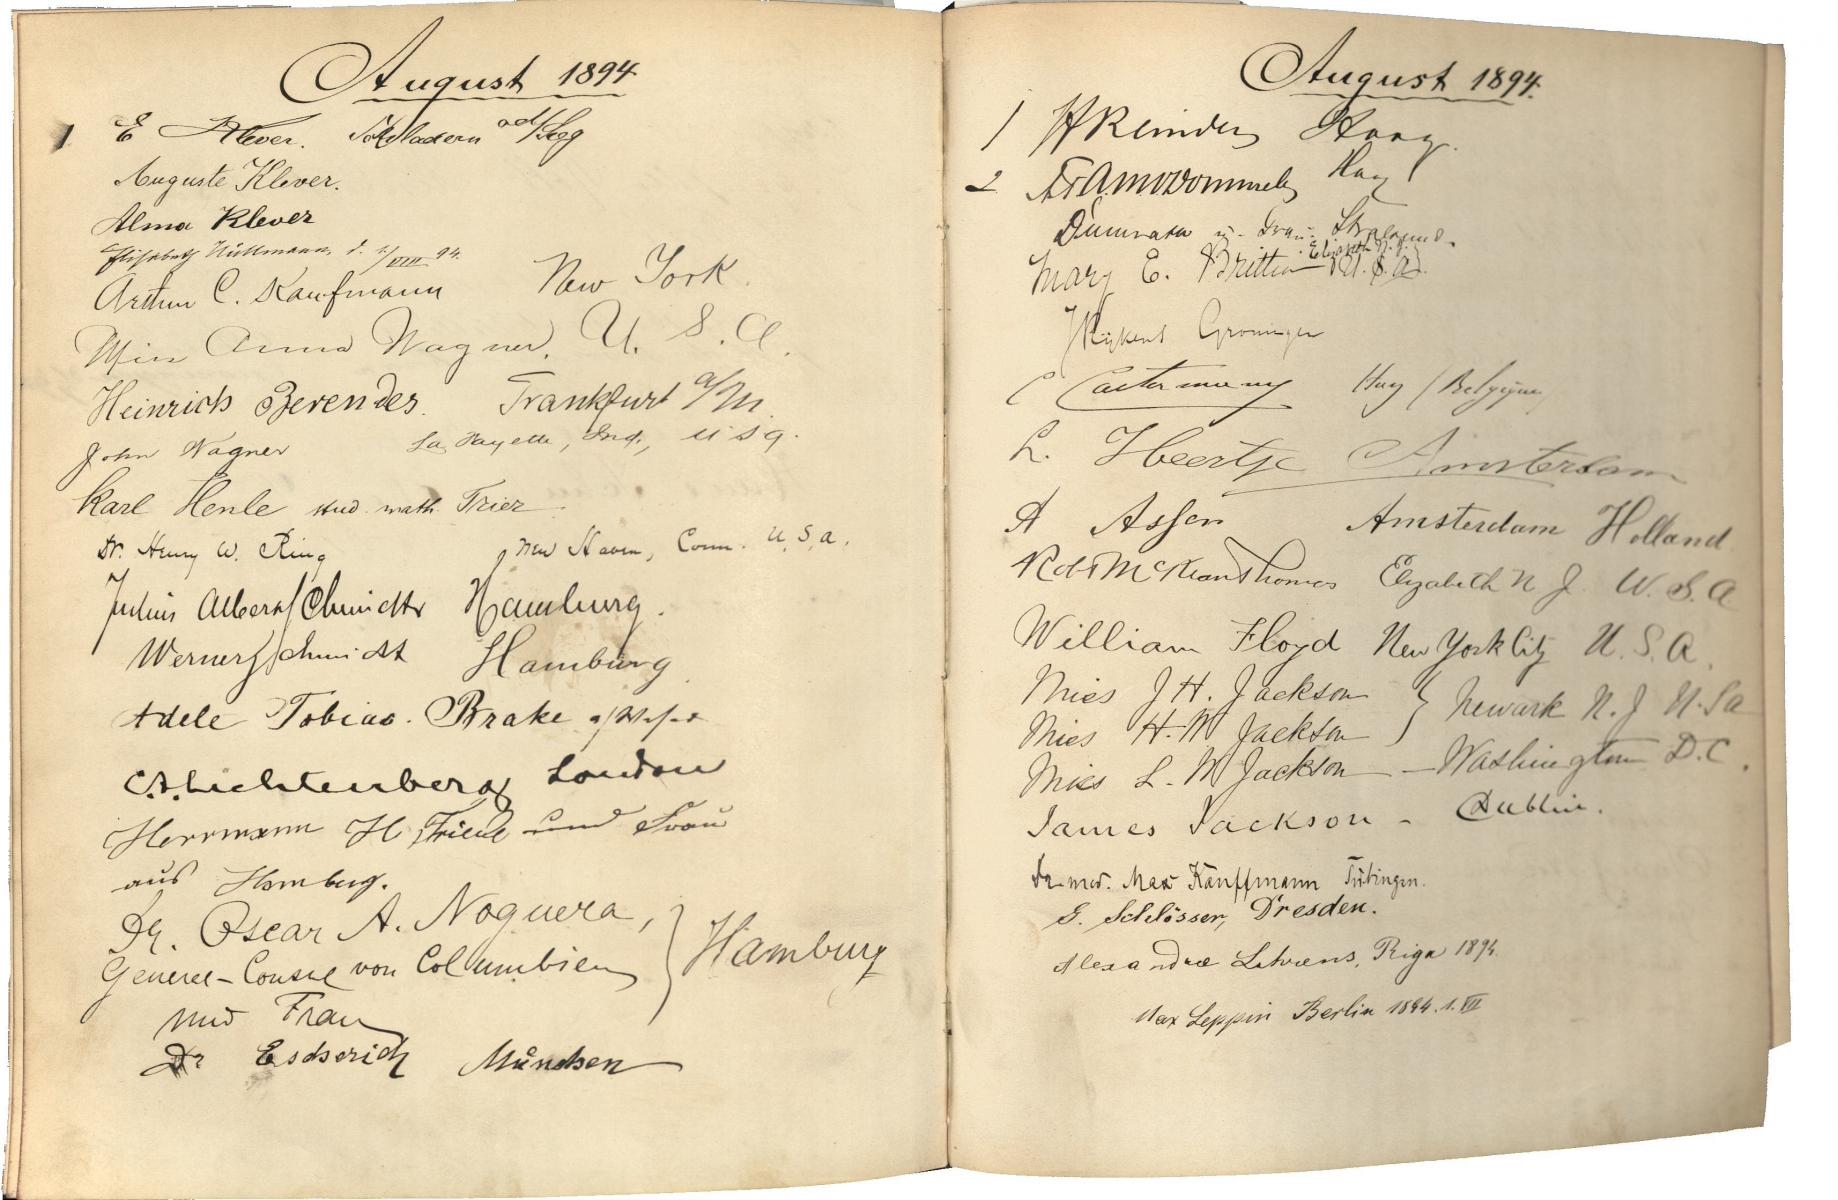 August 1894
1 E Klever. ad/Sieg
Auguste Klever.
Alma Klever
Elisabeth Hüttmann, d. 1/VIII 94.
Arthur C. Kaufmann New York.
Miss Anna Wagner, U. S. A.
Heinrich Berendes. Frankfurt a/M.
John Wagner La Fayette, Ind., U S a.
Karl Henle stud. math. Trier.
Dr. Henry W. Ring New Haven, Conn. U. S. a.
Julius Albert Schmidt Hamburg.
Werner Schmidt Hamburg
Adele Tobias. Brake a/Weser
C. A. Lichtenberg London
Herrmann H. und Frau
aus Hamburg.
Dr. Oscar A. Noguera,
General-Consul von Columbien } Hamburg
und Frau
Dr Escherich München
August 1894.
1 H Reinders Haag.
2 Haag
u. Frau. Stralsund.
Mary E. Britton Elizabeth N. J. U. S. A.
J Rijkens Groningen
C Castermans Huy (Belgique)
L. Heertje Amsterdam
A Assen Amsterdam Holland
Robt McKean Thomas Elizabeth N J. U. S. A
William Floyd New York City U. S. A.
Miss J H. Jackson } Newark N. J U. S a
Miss H. M Jackson
Miss L. M Jackson — Washington D. C.
James Jackson - Dublin.
Dr med. Max Kauffmann Tübingen.
G. Schlösser, Dresden.
Alexandra Behrens, Riga 1894.
Max Leppin Berlin 1894. 1. VII